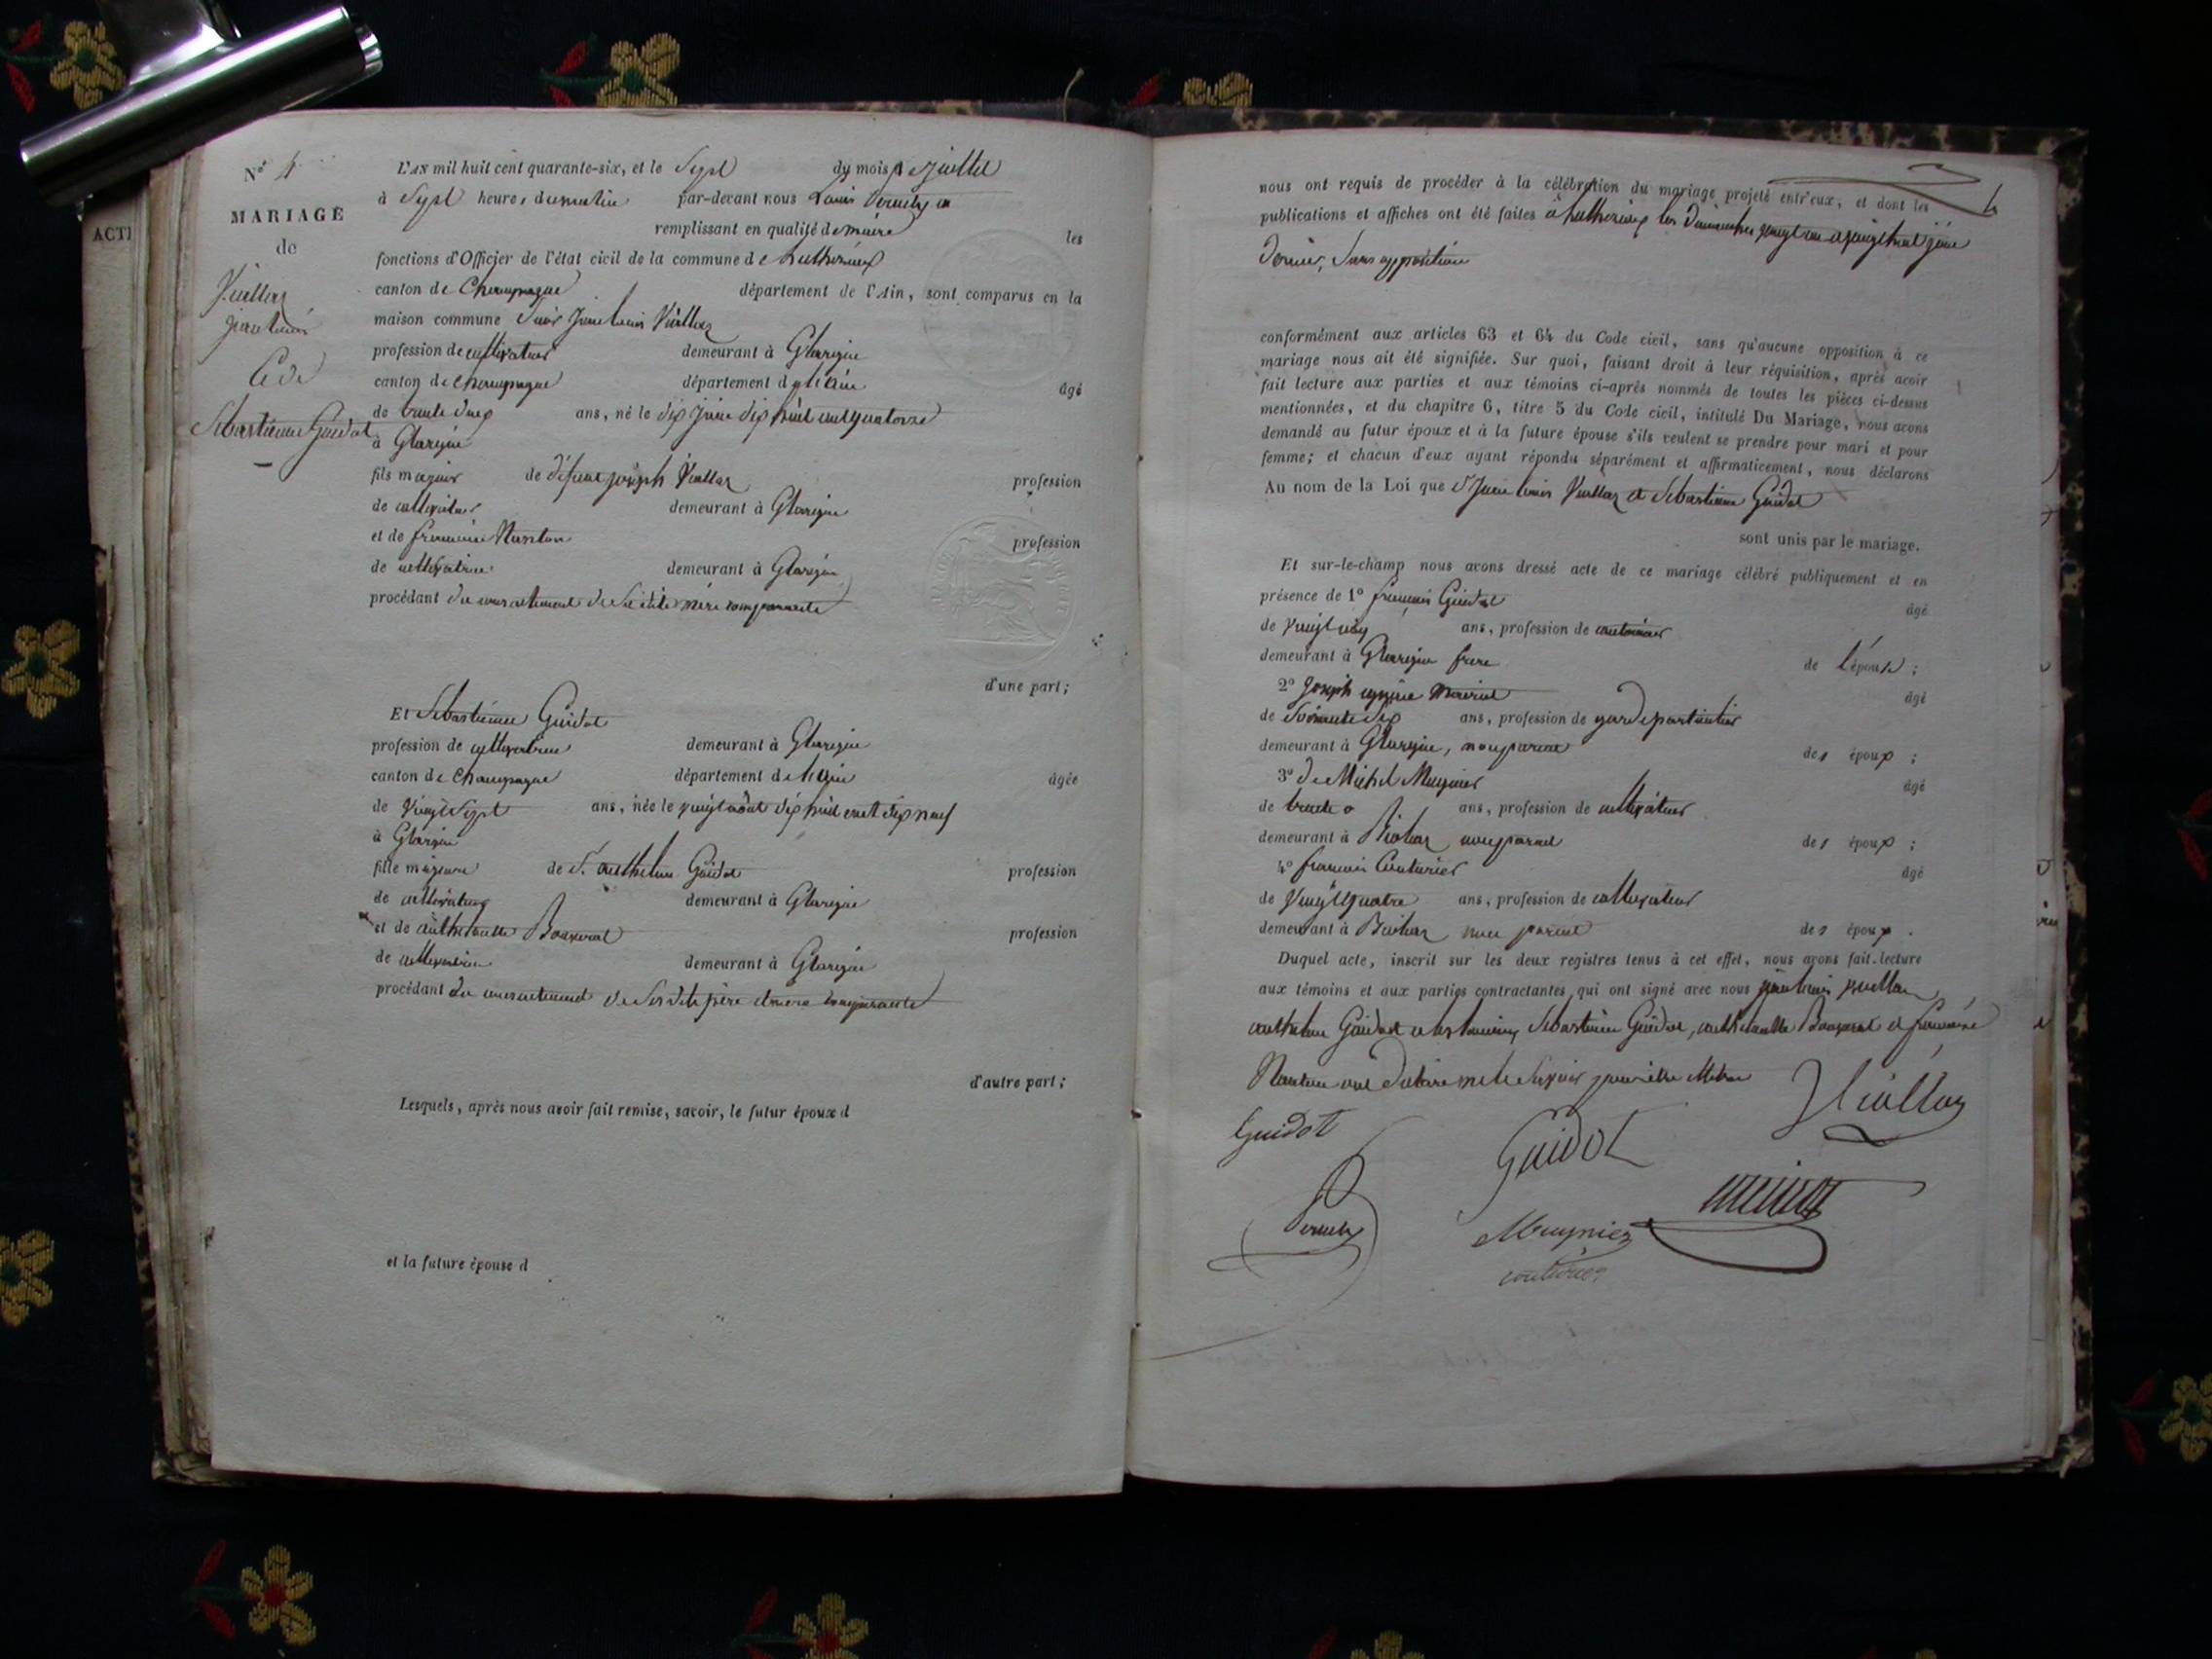 ACTI
N° 4
MARIAGE
de
Viallaz
jean louis
Et de
Sébastienne Guidot
L'AN mil huit cent quarante-six, et le Sept du mois de juillet
à Sept heures du matin par-devant nous Louis
remplissant en qualité de maire les
fonctions d'Officier de l'état civil de la commune de Luthézieu
canton de Champagne département de l'Ain, sont comparus en la
maison commune Jean Louis Viallaz
profession de cultivateur demeurant à Glargin
canton de champagne département de l'ain âgé
de trente deux ans, né le dix juin dix huit cent quatorze
à Glargin
fils majeur de défunt joseph Viallaz profession
de cultivateur demeurant à Glargin
et de profession
de cultivatrice demeurant à Glargin
procédant du consentement de Sa dite mère comparante
d'une part;
Et Sébastienne Guidot
profession de cultivatrice demeurant à Glargin
canton de Champagne département de l'ain âgée
de Vingt Sept ans, née le vingt août dix huit cent dix neuf
à Glargin
fille majeure de S. anthelme Guidot profession
de cultivateur demeurant à Glargin
et de profession
de cultivatrice demeurant à Glargin
procédant du consentement de Ses dits père et mère comparants
d'autre part;
Lesquels, après nous avoir fait remise, savoir, le futur époux d
et la future épouse d
nous ont requis de procéder à la célébration du mariage projeté entr'eux, et dont les
publications et affiches ont été faites à Luthézieu les Dimanches vingt un et vingt huit juin
Dernier, Sans opposition
conformément aux articles 63 et 64 du Code civil, sans qu'aucune opposition à ce
mariage nous ait été signifiée. Sur quoi, faisant droit à leur réquisition, après avoir
fait lecture aux parties et aux témoins ci-après nommés de toutes les pièces ci-dessus
mentionnées, et du chapitre 6, titre 5 du Code civil, intitulé Du Mariage, nous avons
demandé au futur époux et à la future épouse s'ils veulent se prendre pour mari et pour
femme; et chacun d'eux ayant répondu séparément et affirmativement, nous déclarons
Au nom de la Loi que Jean louis Viallaz et Sébastienne Guidot
sont unis par le mariage.
Et sur-le-champ nous avons dressé acte de ce mariage célébré publiquement et en
présence de 1° françois Guidot âgé
de vingt ans, profession de
demeurant à Glargin frère de l'épouse;
2° Joseph âgé
de Soixante dix ans, profession de garde particulier
demeurant à Glargin, non parent des époux;
3° de Michel Meygnier âgé
de trente ans, profession de cultivateur
demeurant à non parent des époux;
4° françois Couturier âgé
de Vingt quatre ans, profession de cultivateur
demeurant à non parent des époux.
Duquel acte, inscrit sur les deux registres tenus à cet effet, nous avons fait lecture
aux témoins et aux parties contractantes, qui ont signé avec nous jean louis Viallaz
anthelme Guidot et les témoins, Sébastienne Guidot, et
ont déclaré ne le Savoir
Viallaz
Guidot
Guidot
Meygnier
couturier